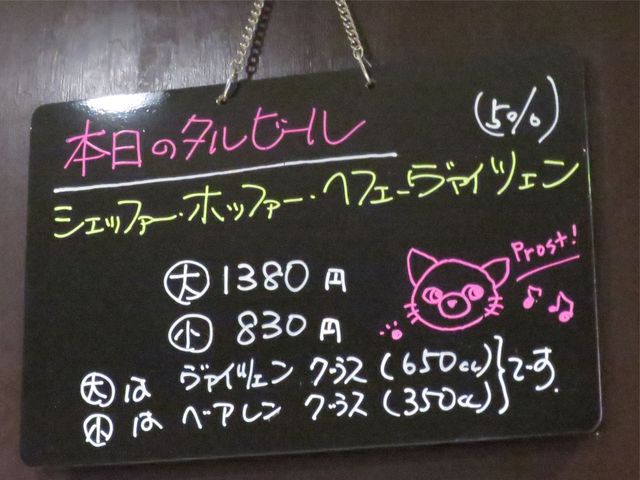 本日のタルビール
(5%)
シェッファー・ホッファー・ヘフェーヴァイツェン
大 1380円
小 830円
Prost!
大は ヴァイツェン グラス (650cc)
小は ベアレン グラス (350cc)
です。